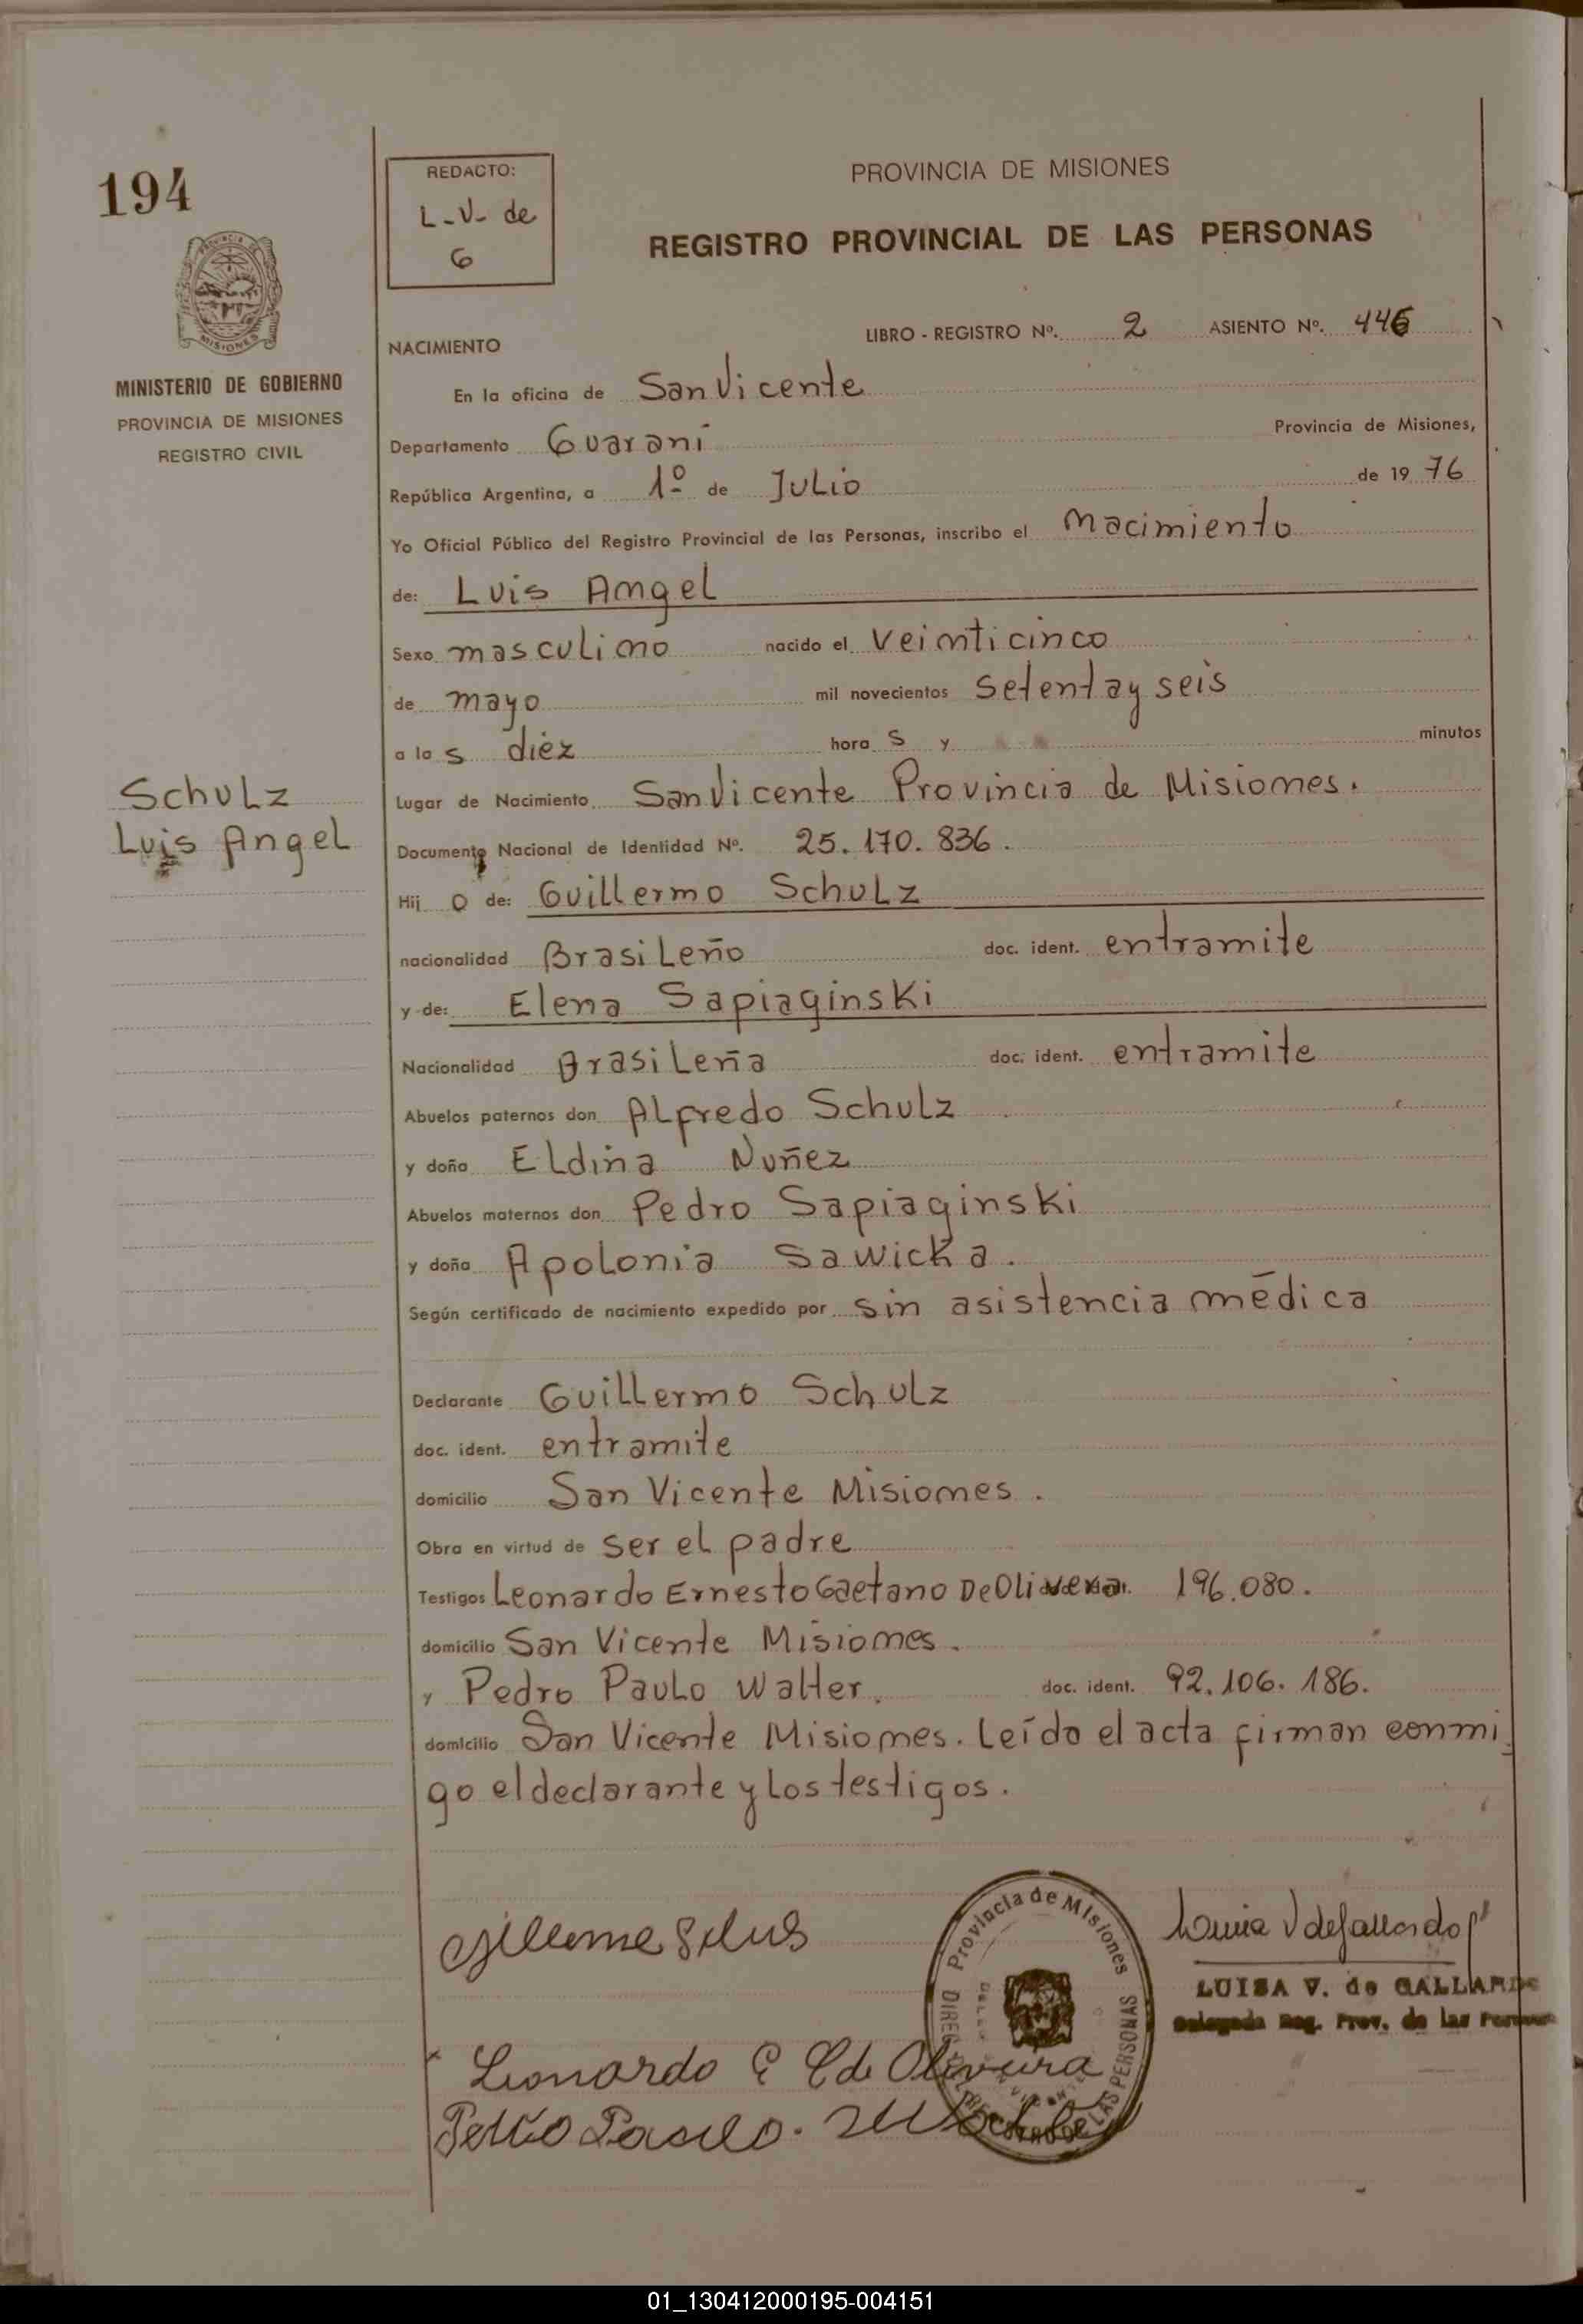 194
REDACTO:
L-V- de
G
PROVINCIA DE MISIONES
REGISTRO PROVINCIAL DE LAS PERSONAS
MISIONES
MINISTERIO DE GOBIERNO
PROVINCIA DE MISIONES
REGISTRO CIVIL
LIBRO - REGISTRO Nº. 2 ASIENTO Nº. 446
NACIMIENTO
En la oficina de San Vicente
Departamento Guaraní Provincia de Misiones,
República Argentina, a 1º de Julio de 19 76
Yo Oficial Público del Registro Provincial de las Personas, inscribo el Nacimiento
de: Luis Angel
Sexo masculino nacido el veinticinco
de mayo mil novecientos setenta y seis
a la s diez hora s y minutos
Lugar de Nacimiento San Vicente Provincia de Misiones.
Schulz
Luis Angel
Documento Nacional de Identidad Nº. 25.170.836.
Hij o de: Guillermo Schulz
nacionalidad Brasileño doc. ident. entramite
y de: Elena Sapiaginski
Nacionalidad Brasileña doc. ident. entramite
Abuelos paternos don Alfredo Schulz
y doña Eldina Nuñez
Abuelos maternos don Pedro Sapiaginski
y doña Apolonia Sawicka.
Según certificado de nacimiento expedido por sin asistencia médica
Declarante Guillermo Schulz
doc. ident. entramite
domicilio San Vicente Misiones.
Obra en virtud de ser el padre
Testigos Leonardo Ernesto Gaetano De Olivera. 196.080.
domicilio San Vicente Misiones.
y Pedro Paulo Walter. doc. ident. 92.106.186.
domicilio San Vicente Misiones. Leído el acta firman conmi
go el declarante y los testigos.
Provincia de Misiones
LAS PERSONAS
LUISA V. de GALLARDO
Delegada Reg. Prov. de las Personas
Leonardo E G de Oliveira
Pedro Paulo.
01_130412000195-004151